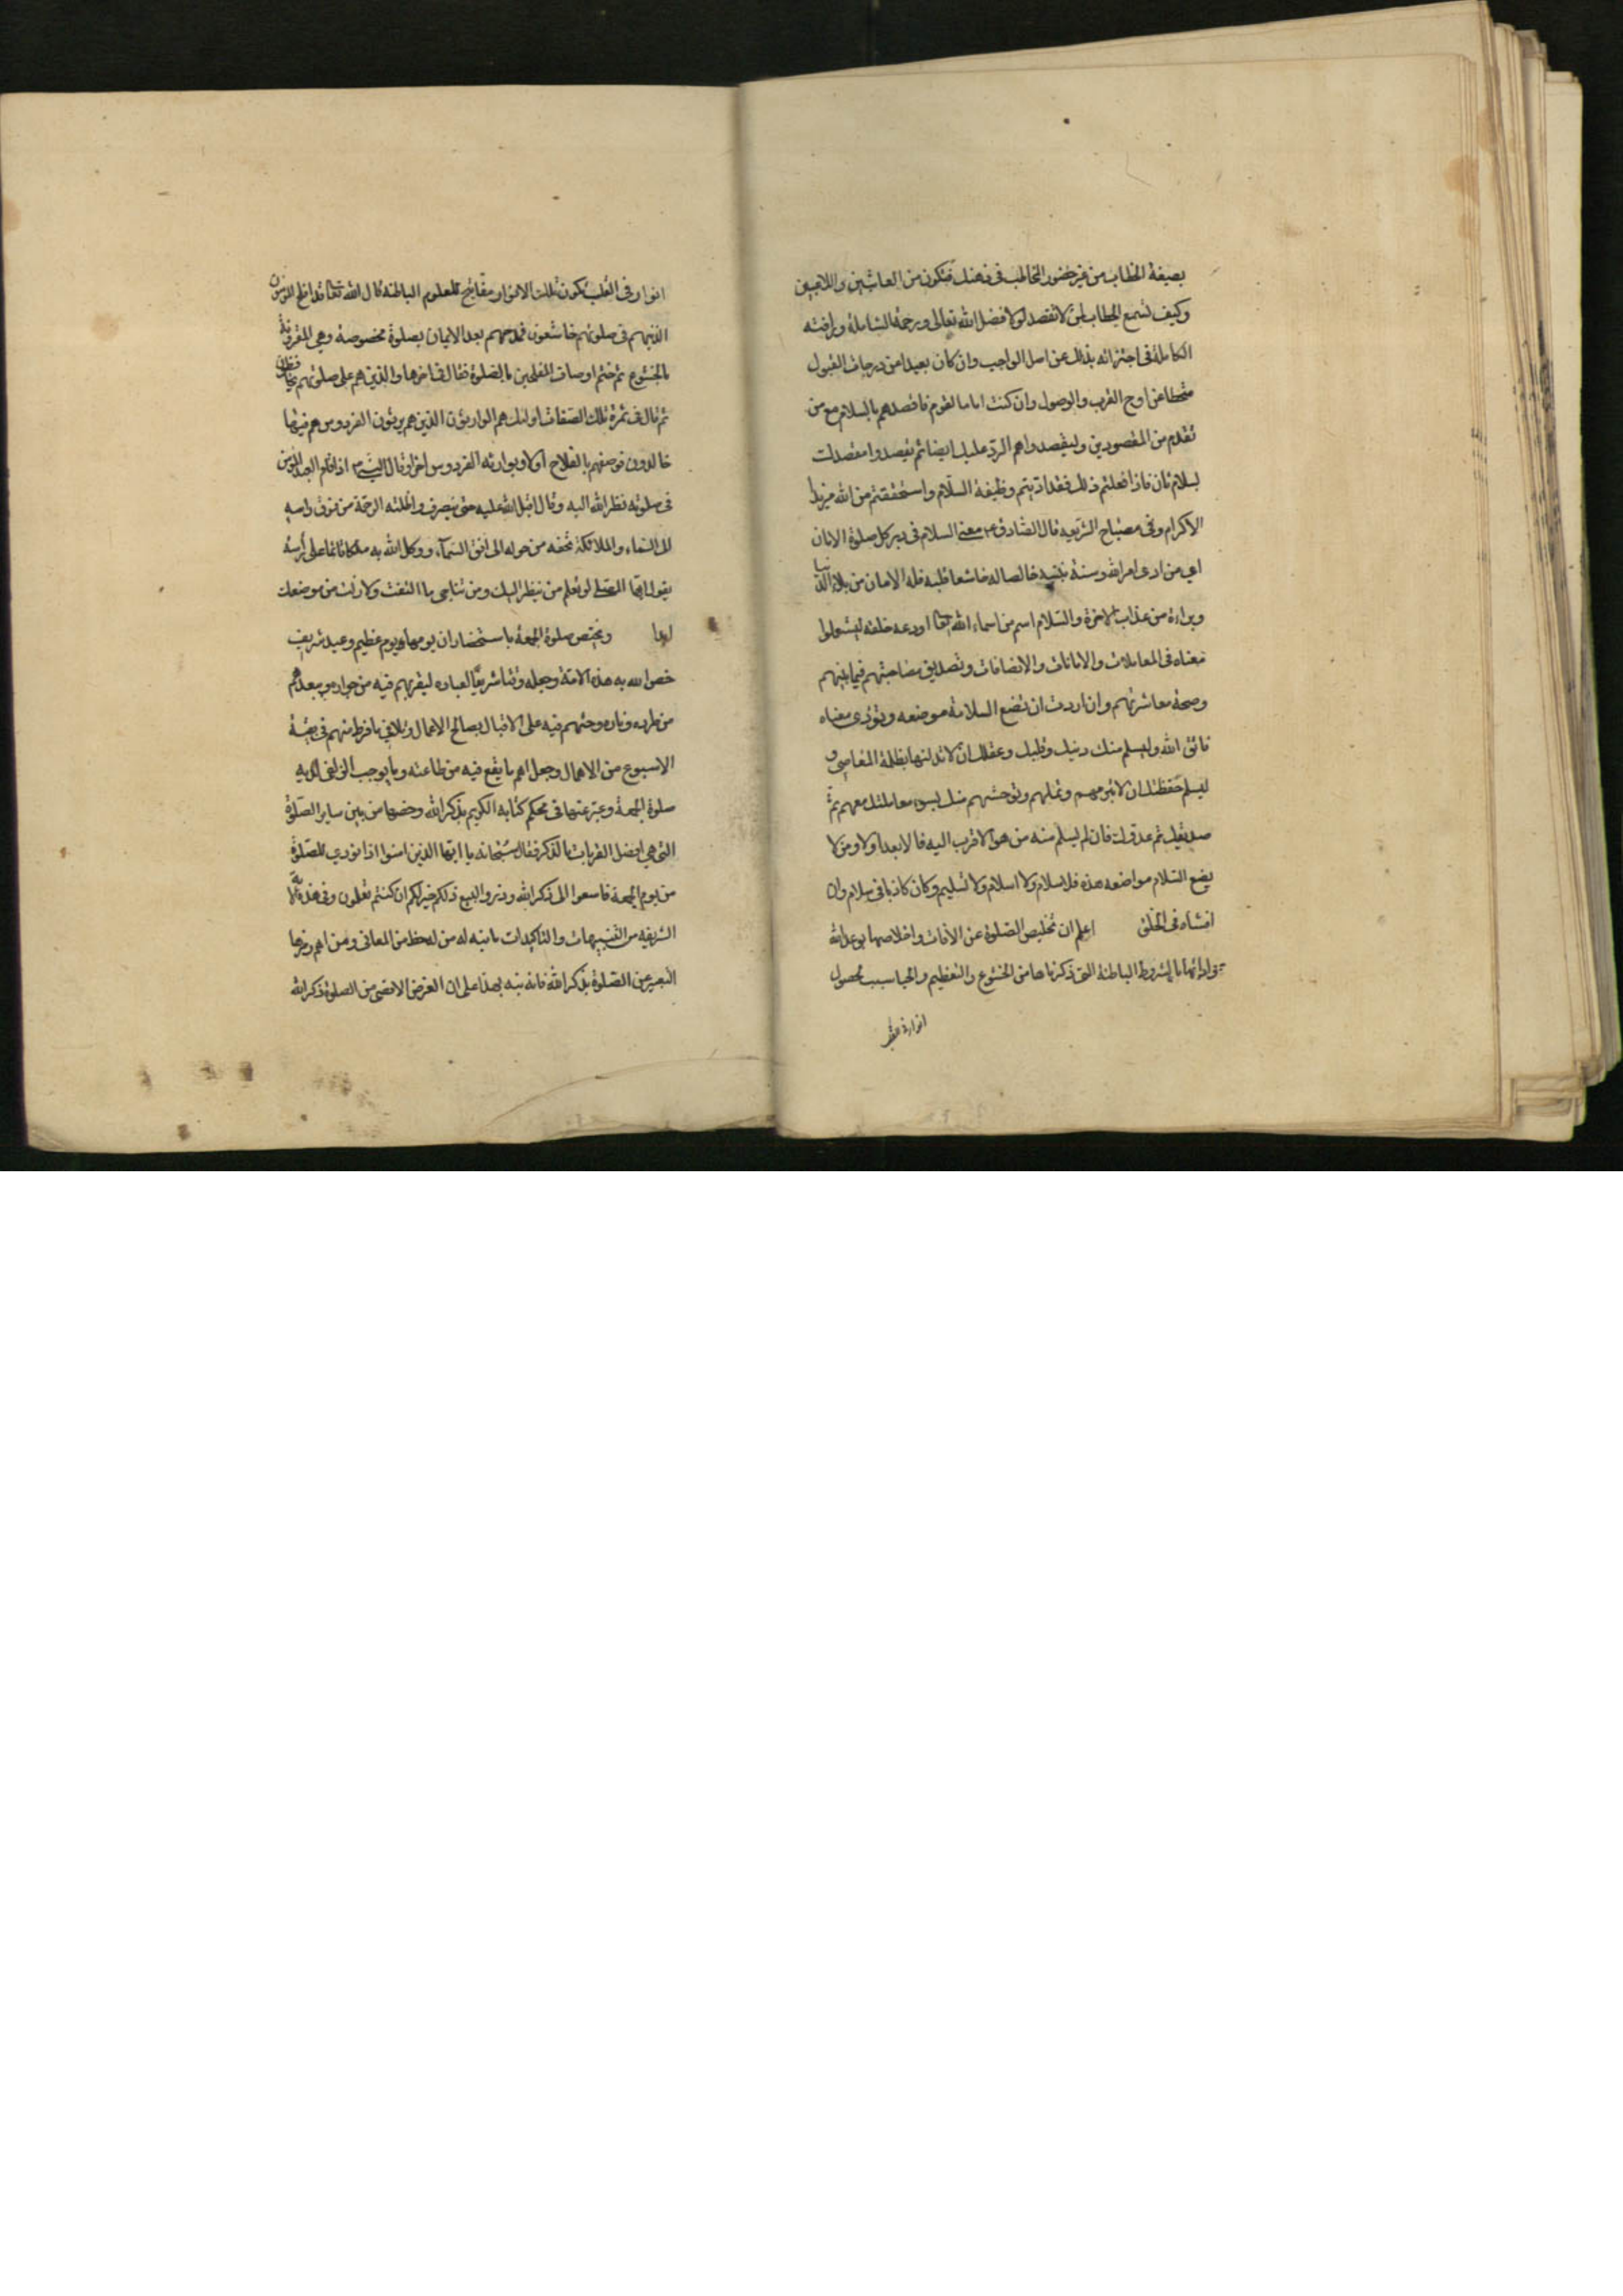 بصيغة الخطاب من غير حضور المخاطب في ذهنك فتكون من العابثين واللاعبين
وكيف تسمع الخطاب لمن لا تقصد لولا فضل الله تعالى ورحمة الشاملة ورأفته
الكاملة في اجتزائه بذلك عن اصل الواجب وان كان بعيدا من درجات القبول
منحطا عن اوج القرب والوصول وان كنت اماما لقوم فاقصدهم بالسلام مع من
تقدم من المقصودين وليقصدوا هم الرد عليك ايضا ثم يقصدوا مقصدك
بسلام ثان فاذا فعلتم ذلك فقد اديتم وظيفة السلام واستحققتم من الله مزيد
الاكرام وفي مصباح الشريعه قال الصادق ع معنى السلام في دبر كل صلوة الامان
اي من ادى امر الله وسنة نبيه خالصا له خاشعا قلبه فله الامان من بلاء الدنيا
وبراءة من عذاب الاخرة والسلام اسم من اسماء الله تعا اودعه خلقه ليستعملوا
معناه في المعاملات والامانات والانصافات وتصديق مصاحبتهم فيما بينهم
وصحة معاشرتهم وان اردت ان تضع السلامة موضعه وتؤدى معناه
فاتق الله وليسلم منك دينك وقلبك وعقلك ان لا تدنسها بظلمة المعاصي و
ليسلم حفظتك ان لا تبرمهم وتملهم وتوحشهم منك بسوء معاملتك معهم ثم
صديقك ثم عدوك فان لم يسلم منه من هو الاقرب اليه فالابعد اولا ومن لا
يضع السلام مواضعه هذه فلا سلام ولا اسلام ولا تسليم وكان كاذبا في سلامه وان
افشاه في الخلق اعلم ان تخليص الصلوة عن الافات واخلاصها لوجه الله
وادائها بالشروط الباطنة التي ذكرناها من الخشوع والتعظيم والحيا سبب لحصول
انوار في القلب
انوار في القلب تكون تلك الانوار مفاتيح للعلوم الباطنة قال الله تعا قد افلح المؤمنون
الذينهم في صلوتهم خاشعون فمدحهم بعد الايمان بصلوة مخصوصة وهي المقرونة
بالخشوع ثم ختم اوصاف المفلحين بالصلوة فقال في اخرها والذين هم على صلوتهم يحافظون
ثم قال في ثمرة تلك الصفات اولئك هم الوارثون الذين هم يرثون الفردوس هم فيها
خالدون فوصفهم بالفلاح اولا وبوراثة الفردوس اخرا وقال النبي ص اذا قام العبد المؤمن
في صلوته نظر الله اليه وقال اقبل الله عليه حتى ينصرف واظلته الرحمة من فوق راسه
الى السماء والملائكة تحفه من حوله الى افق السمآء ووكل الله به ملكا قائما على رأسه
يقول ايها المصلي لو تعلم من ينظر اليك ومن تناجى ما التفت ولا زلت من موضعك
ابدا ويختص صلوة الجمعة باستحضار ان يومها يوم عظيم وعيد شريف
خص الله به هذه الامة وجعله وقتا شريفا لعباده ليقربهم فيه من جواره ويبعدهم
من طرده وناره وحثهم فيه على الاقبال بصالح الاعمال وتلافي ما فرط منهم في بقية
الاسبوع من الاهمال وجعل اهم ما يقع فيه من طاعته وما يوجب الزلفى لديه
صلوة الجمعة وعبر عنها في محكم كتابه الكريم بذكر الله وخصها من بين ساير الصلوة
التي هي افضل القربات بالذكر فقال سبحانه يا ايها الذين امنوا اذا نودي للصلوة
من يوم الجمعة فاسعوا الى ذكر الله وذروا البيع ذلكم خير لكم ان كنتم تعلمون وفي هذه الآية
الشريفه من التنبيهات والتاكيدات ما ينبه له من له حظ من المعاني ومن اهم رمزها
التعبير عن الصلوة بذكر الله فانه نبه بهذا على ان الغرض الاقصى من الصلوة ذكر الله